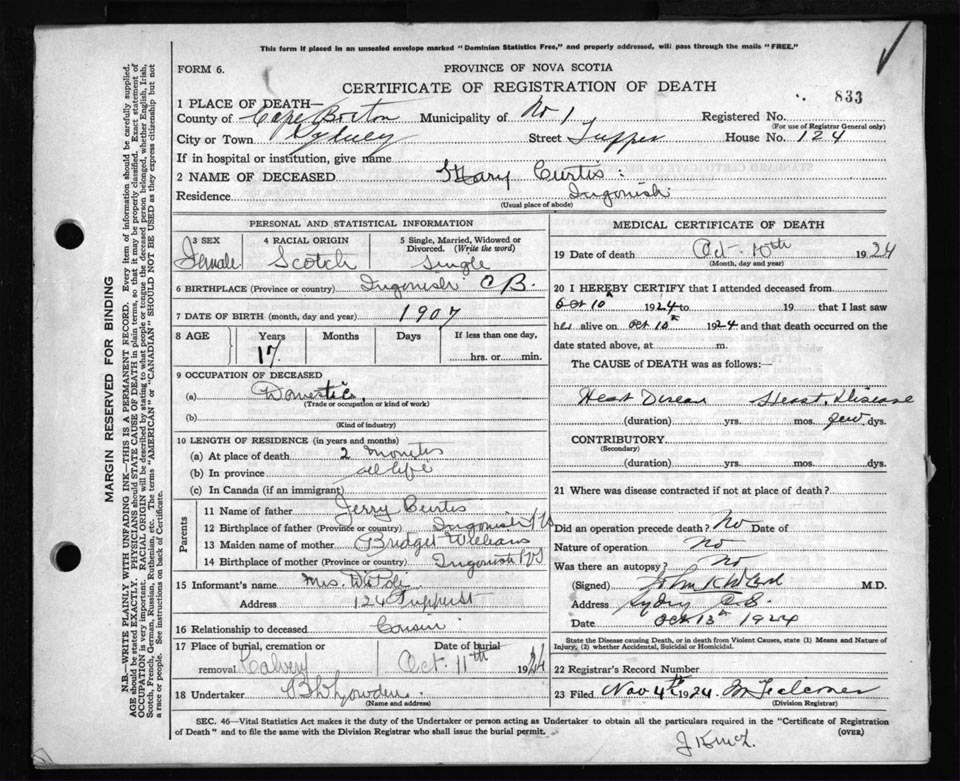 This form if placed in an unsealed envelope marked "Dominion Statistics Free," and properly addressed, will pass through the mails "FREE."
FORM 6.
PROVINCE OF NOVA SCOTIA
CERTIFICATE OF REGISTRATION OF DEATH
833
1 PLACE OF DEATH—
County of Cape Breton Municipality of No 1 Registered No.
(For use of Registrar General only)
City or Town Sydney Street Tupper House No. 124
If in hospital or institution, give name
2 NAME OF DECEASED Mary Curtis
Residence Ingonish
(Usual place of abode)
PERSONAL AND STATISTICAL INFORMATION
3 SEX Female
4 RACIAL ORIGIN Scotch
5 Single, Married, Widowed or Divorced. (Write the word) Single
6 BIRTHPLACE (Province or country) Ingonish C B.
7 DATE OF BIRTH (month, day and year) 1907
8 AGE Years 17 Months Days If less than one day, hrs. or min.
9 OCCUPATION OF DECEASED
(a) Domestic
(Trade or occupation or kind of work)
(b)
(Kind of industry)
10 LENGTH OF RESIDENCE (in years and months)
(a) At place of death 2 months
(b) In province all life
(c) In Canada (if an immigrant)
Parents
11 Name of father Jerry Curtis
12 Birthplace of father (Province or country) Ingonish NS
13 Maiden name of mother Bridget Williams
14 Birthplace of mother (Province or country) Ingonish NS
15 Informant's name Mrs.
Address 124 Tupper St
16 Relationship to deceased Cousin
17 Place of burial, cremation or removal Calvery Date of burial Oct. 11th 1924
18 Undertaker
(Name and address)
MEDICAL CERTIFICATE OF DEATH
19 Date of death Oct 10th 1924
(Month, day and year)
20 I HEREBY CERTIFY that I attended deceased from
Oct 10th 1924 to 19 that I last saw
her alive on Oct 10th 1924 and that death occurred on the
date stated above, at m.
The CAUSE OF DEATH was as follows:
Heart Disease Heart Disease
(duration) yrs. mos. few dys.
CONTRIBUTORY
(Secondary)
(duration) yrs. mos. dys.
21 Where was disease contracted if not at place of death?
Did an operation precede death? No Date of
Nature of operation No
Was there an autopsy? No
(Signed) John K M.D.
Address Sydney C.B.
Date Oct 13th 1924
State the Disease causing Death, or in death from Violent Causes, state (1) Means and Nature of Injury, (2) whether Accidental, Suicidal or Homicidal.
22 Registrar's Record Number
23 Filed Nov 4th 1924
(Division Registrar)
SEC. 46—Vital Statistics Act makes it the duty of the Undertaker or person acting as Undertaker to obtain all the particulars required in the "Certificate of Registration
of Death" and to file the same with the Division Registrar who shall issue the burial permit.
(OVER)
MARGIN RESERVED FOR BINDING
N.B.—WRITE PLAINLY WITH UNFADING INK—THIS IS A PERMANENT RECORD. Every item of information should be carefully supplied.
AGE should be stated EXACTLY. PHYSICIANS should STATE CAUSE OF DEATH in plain terms, so that it may be properly classified. Exact statement of
OCCUPATION is very important. RACIAL ORIGIN will be described by stating to what people or tongue the deceased person belonged, whether English, Irish,
Scotch, French, German, Russian, Ruthenian, etc. The terms "AMERICAN" or "CANADIAN" SHOULD NOT BE USED as they express citizenship but not
a race or people. See instructions on back of Certificate.